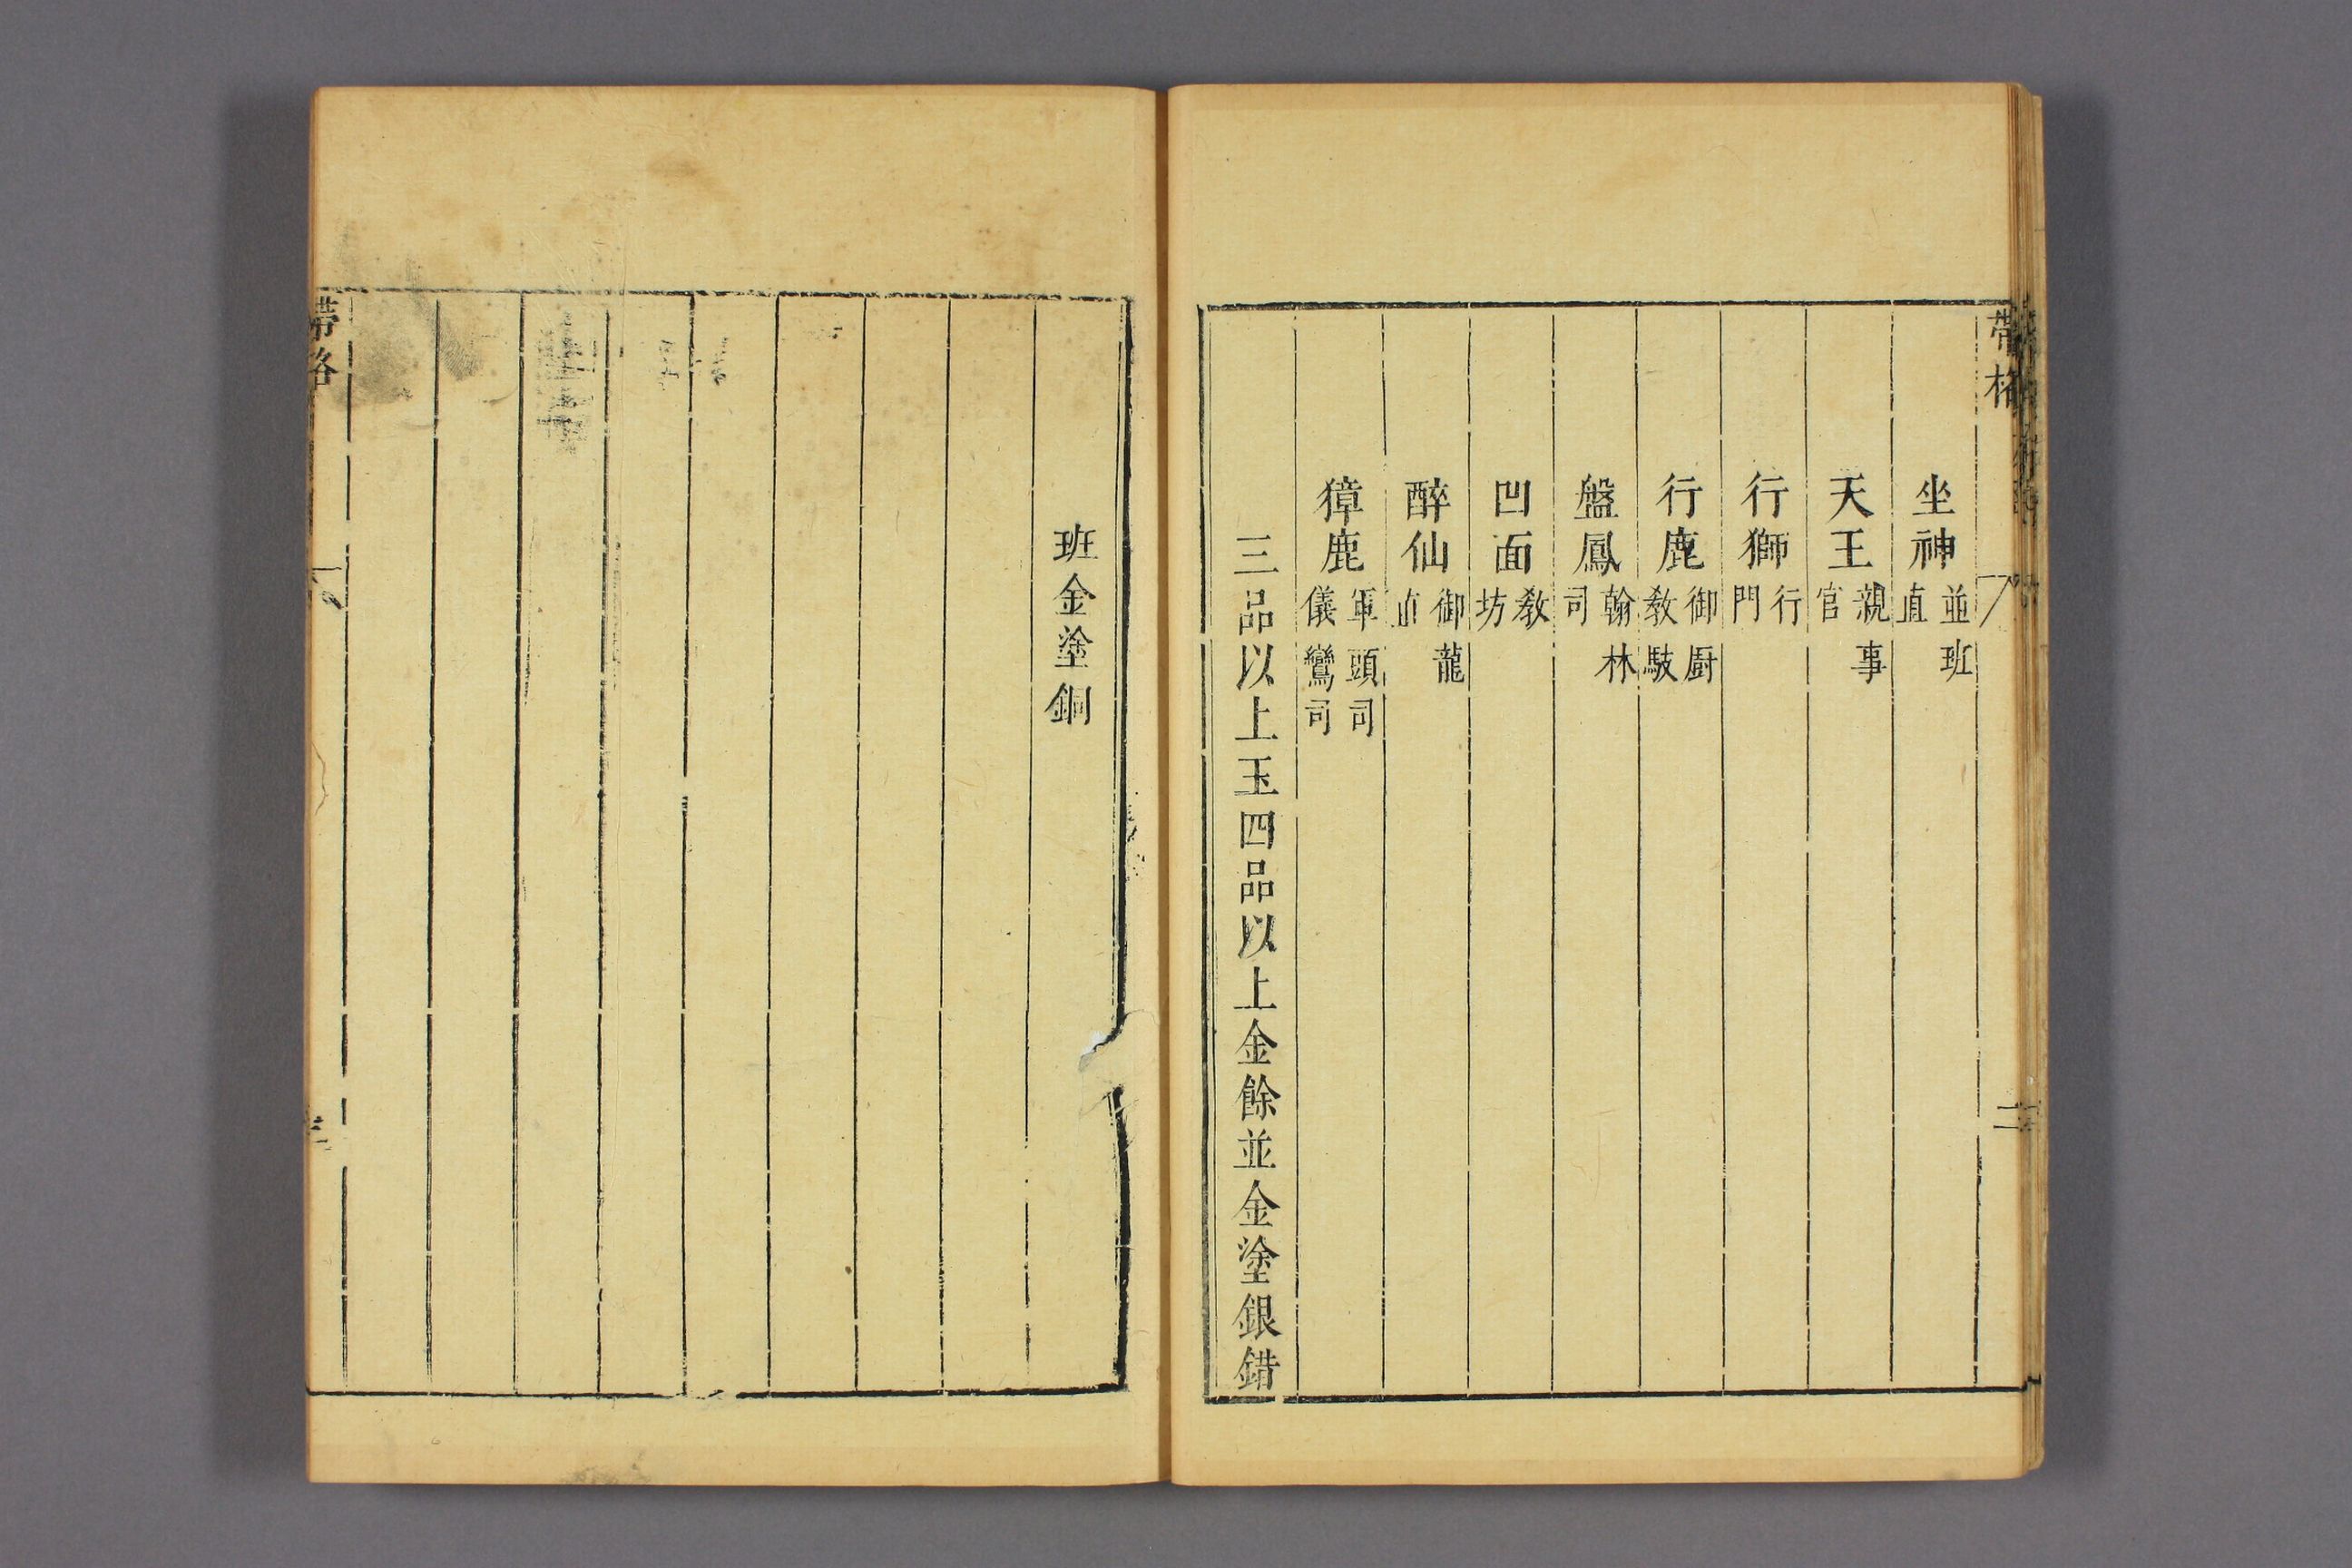 帶格
二
坐神並班直
天王親事官
行獅行門
行鹿御厨教駿
盤鳳翰林司
凹面教坊
醉仙御龍直
獐鹿軍頭司儀鸞司
三品以上玉四品以上金餘並金塗銀錯
班金塗銅
帶格